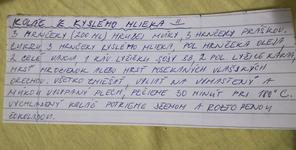 KOLÁČ Z KYSLÉHO MLIEKA
3 HRNČEKY (200 ML) HRUBEJ MÚKY, 3 HRNČEKY PRÁŠKOV.
CUKRU, 3 HRNČEKY KYSLÉHO MLIEKA, POL HRNČEKA OLEJA
2 CELÉ VAJCIA, 1 KÁV. LYŽIČKU SÓDY SB, 2 POL. LYŽICE KAKAA,
HRSŤ HROZIENOK ALEBO HRSŤ POSEKANÝCH VLAŠSKÝCH
ORECHOV. VŠETKO ZMIEŠAŤ, VYLIAŤ NA VYMASTENÝ A
MÚKOU VYSYPANÝ PLECH, PEČIEME 30 MINÚT PRI 180°C.
VYCHLADNUTÝ KOLÁČ POTRIEME DŽEMOM A ROZTOPENOU
ČOKOLÁDOU.